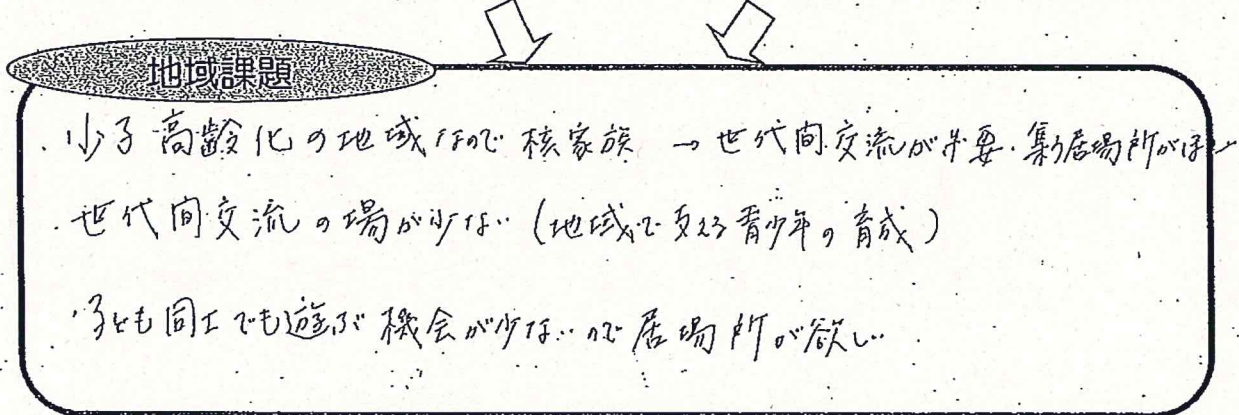 地域課題
・少子高齢化の地域なので核家族 → 世代間交流が必要・集う居場所がほしい
・世代間交流の場が少ない (地域で支える青少年の育成)
・子ども同士でも遊ぶ機会が少ないので居場所が欲しい